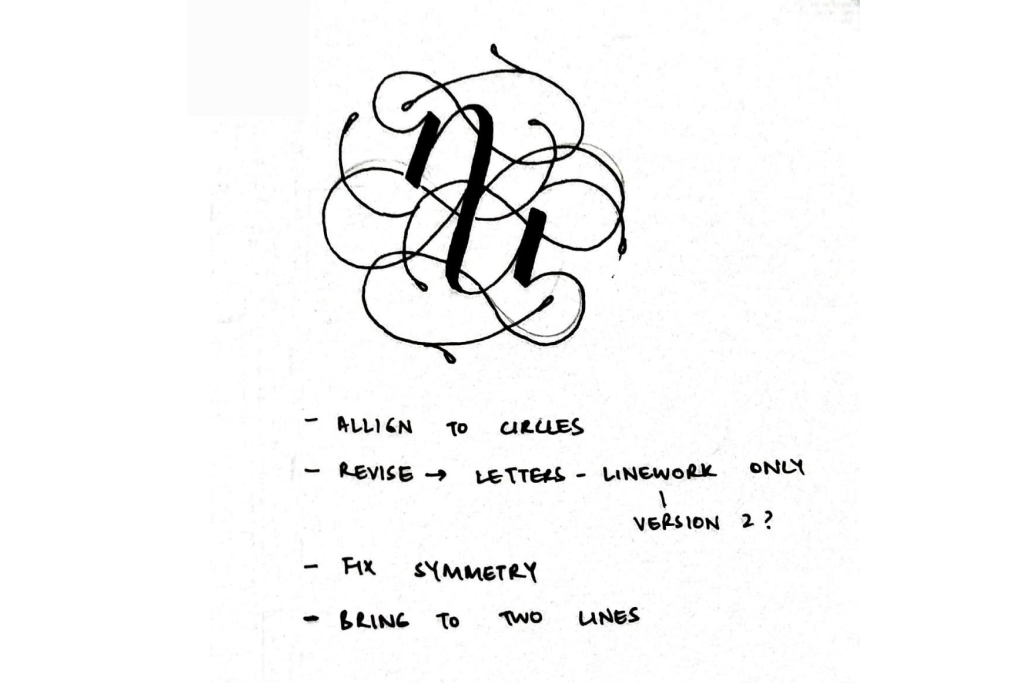 - ALLIGN TO CIRCLES
- REVISE → LETTERS - LINEWORK ONLY
VERSION 2 ?
- FIX SYMMETRY
- BRING TO TWO LINES